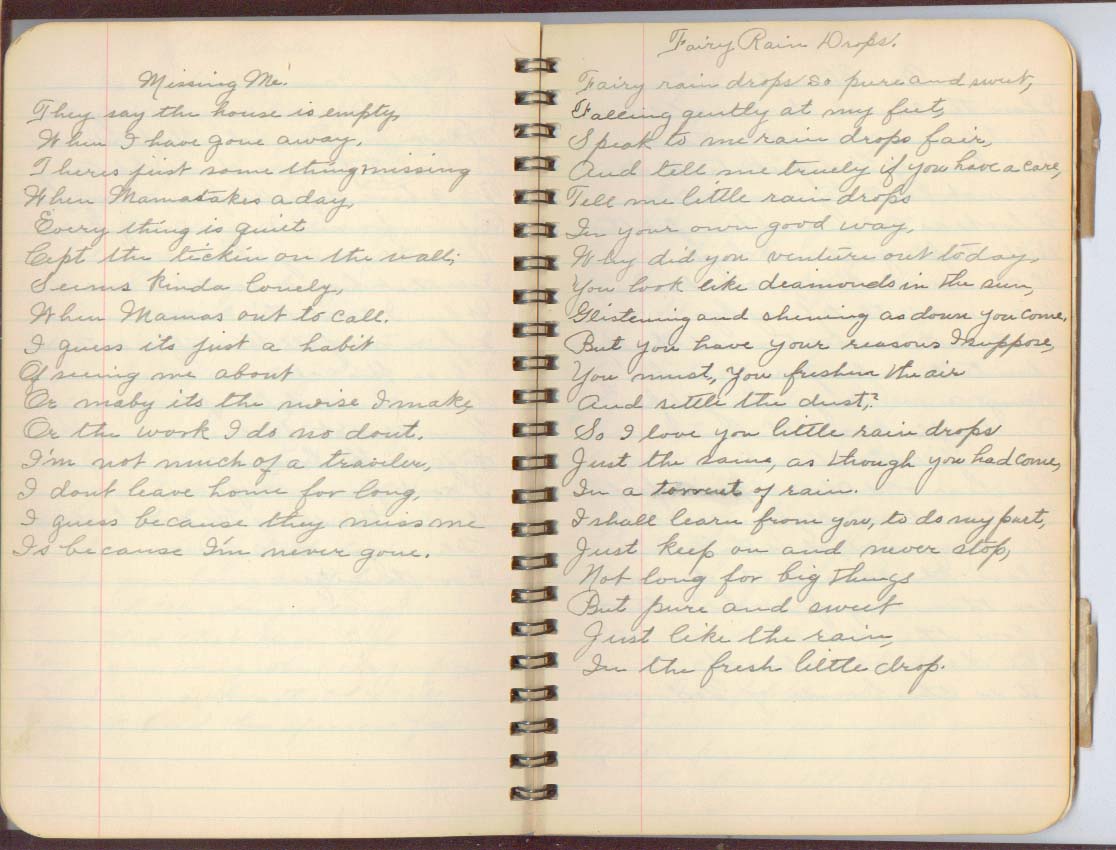 Missing Me.
They say the house is empty,
When I have gone away.
Theres just some thing missing
When Mamas takes a day,
Every thing is quiet
Cept the tickin on the wall;
Seems kinda lonely,
When Mamas out to call.
I guess its just a habit
Of seeing me about
Or maby its the noise I make,
Or the work I do no dout.
I'm not much of a traveler,
I dont leave home for long,
I guess because they miss me
Is because I'm never gone.
Fairy Rain Drops.
Fairy rain drops so pure and sweet,
Falling gently at my feet,
Speak to me rain drops fair,
And tell me truely if you have a care,
Tell me little rain drops
In your own good way,
Why did you venture out today,
You look like deamonds in the sun,
Glistening and shining as down you come,
But you have your reasons I suppose,
You must, you freshen the air
And settle the dust,?
So I love you little rain drops
Just the same, as though you had come,
In a torrent of rain.
I shall learn from you, to do my part,
Just keep on and never stop,
Not long for big things
But pure and sweet
Just like the rain,
In the fresh little drop.